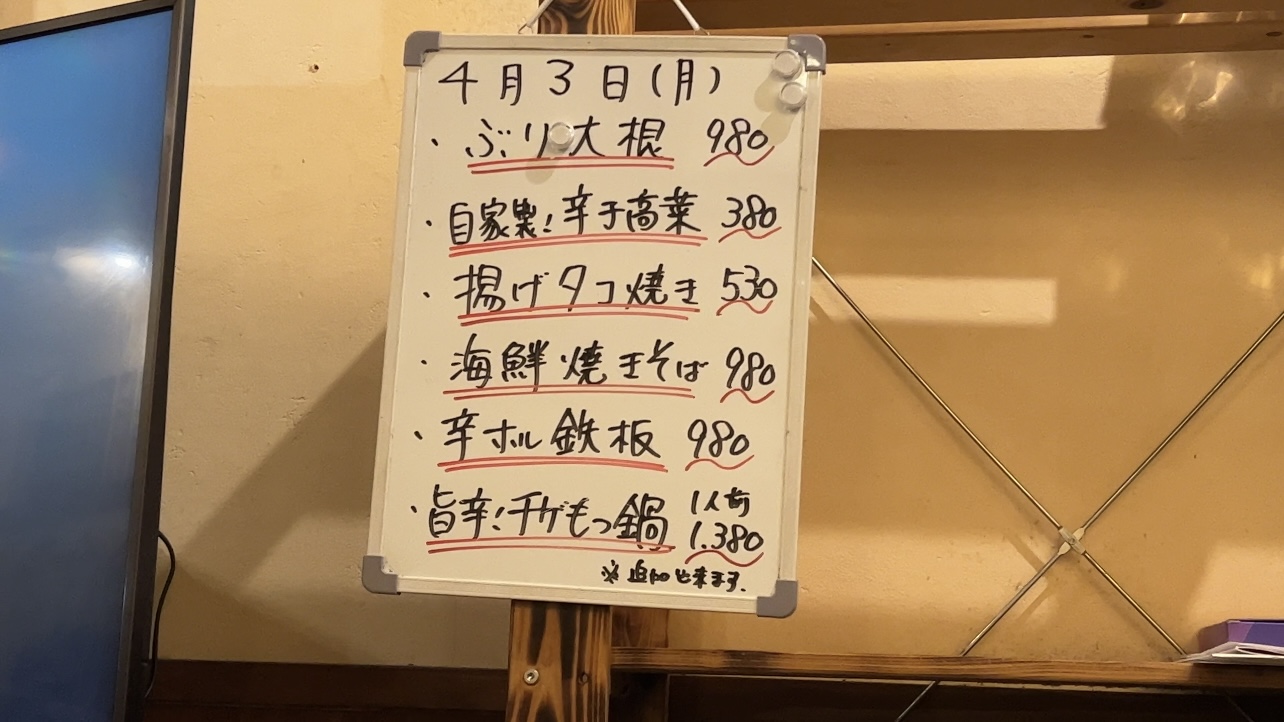 4月3日(月)
・ぶり大根 980
・自家製!辛子高菜 380
・揚げタコ焼き 530
・海鮮焼きそば 980
・辛ホル鉄板 980
・旨辛!チゲもつ鍋 1人前 1.380
※追加出来ます.